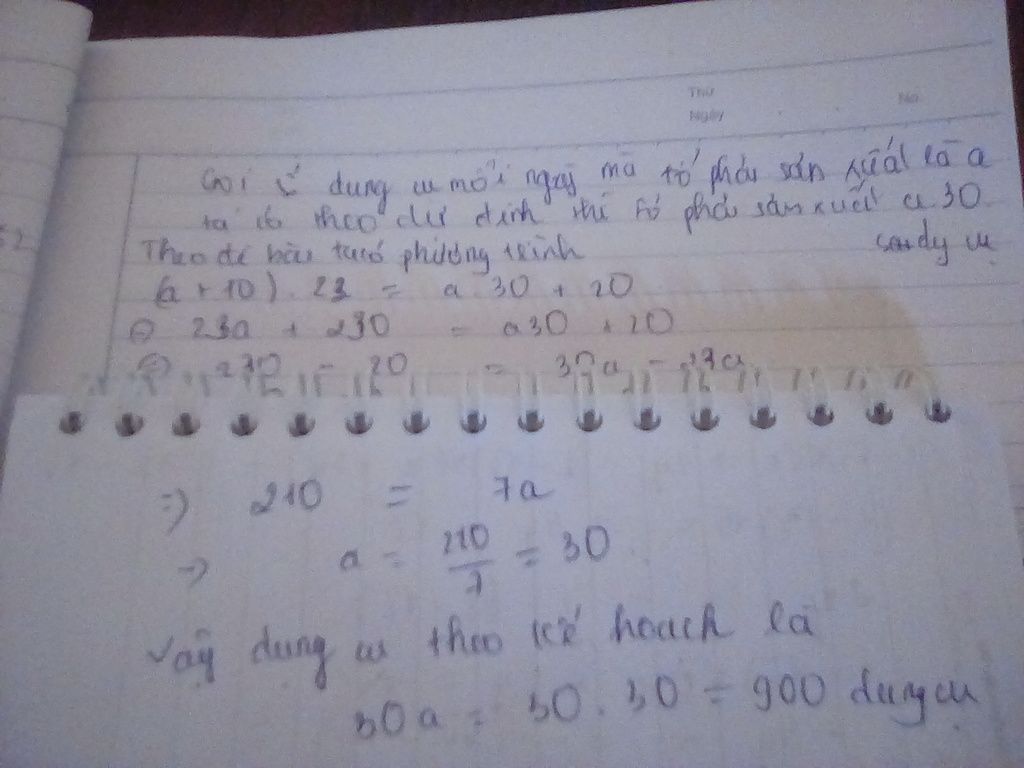 Thứ
Ngày
No
Gọi số dụng cụ mỗi ngày mà tổ phải sản xuất là a
ta có theo dự định thì tổ phải sản xuất a.30
Theo đề bài ta có phương trình dụng cụ
(a + 10) . 23 = a 30 + 20
23a + 230 = a30 + 20
230 - 20 = 30a - 23a
52
=> 210 = 7a
=> a = 210/7 = 30
Vậy dụng cụ theo kế hoạch là
30a = 30 . 30 = 900 dụng cụ